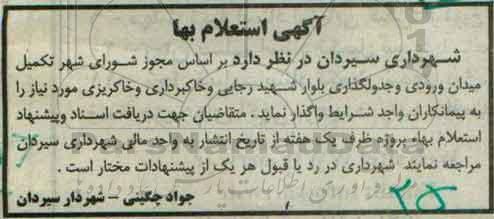 آگهی استعلام بها
شهرداری سیردان در نظر دارد بر اساس مجوز شورای شهر تکمیل
میدان ورودی وجدولگذاری بلوار شهید رجایی وخاکبرداری وخاکریزی مورد نیاز را
به پیمانکاران واجد شرایط واگذار نماید . متقاضیان جهت دریافت اسناد وپیشنهاد
استعلام بهاء پروژه ظرف یک هفته از تاریخ انتشار به واحد مالی شهرداری سیردان
مراجعه نمایند شهرداری در رد یا قبول هر یک از پیشنهادات مختار است .
جواد چگینی – شهردار سیردان
۲۵